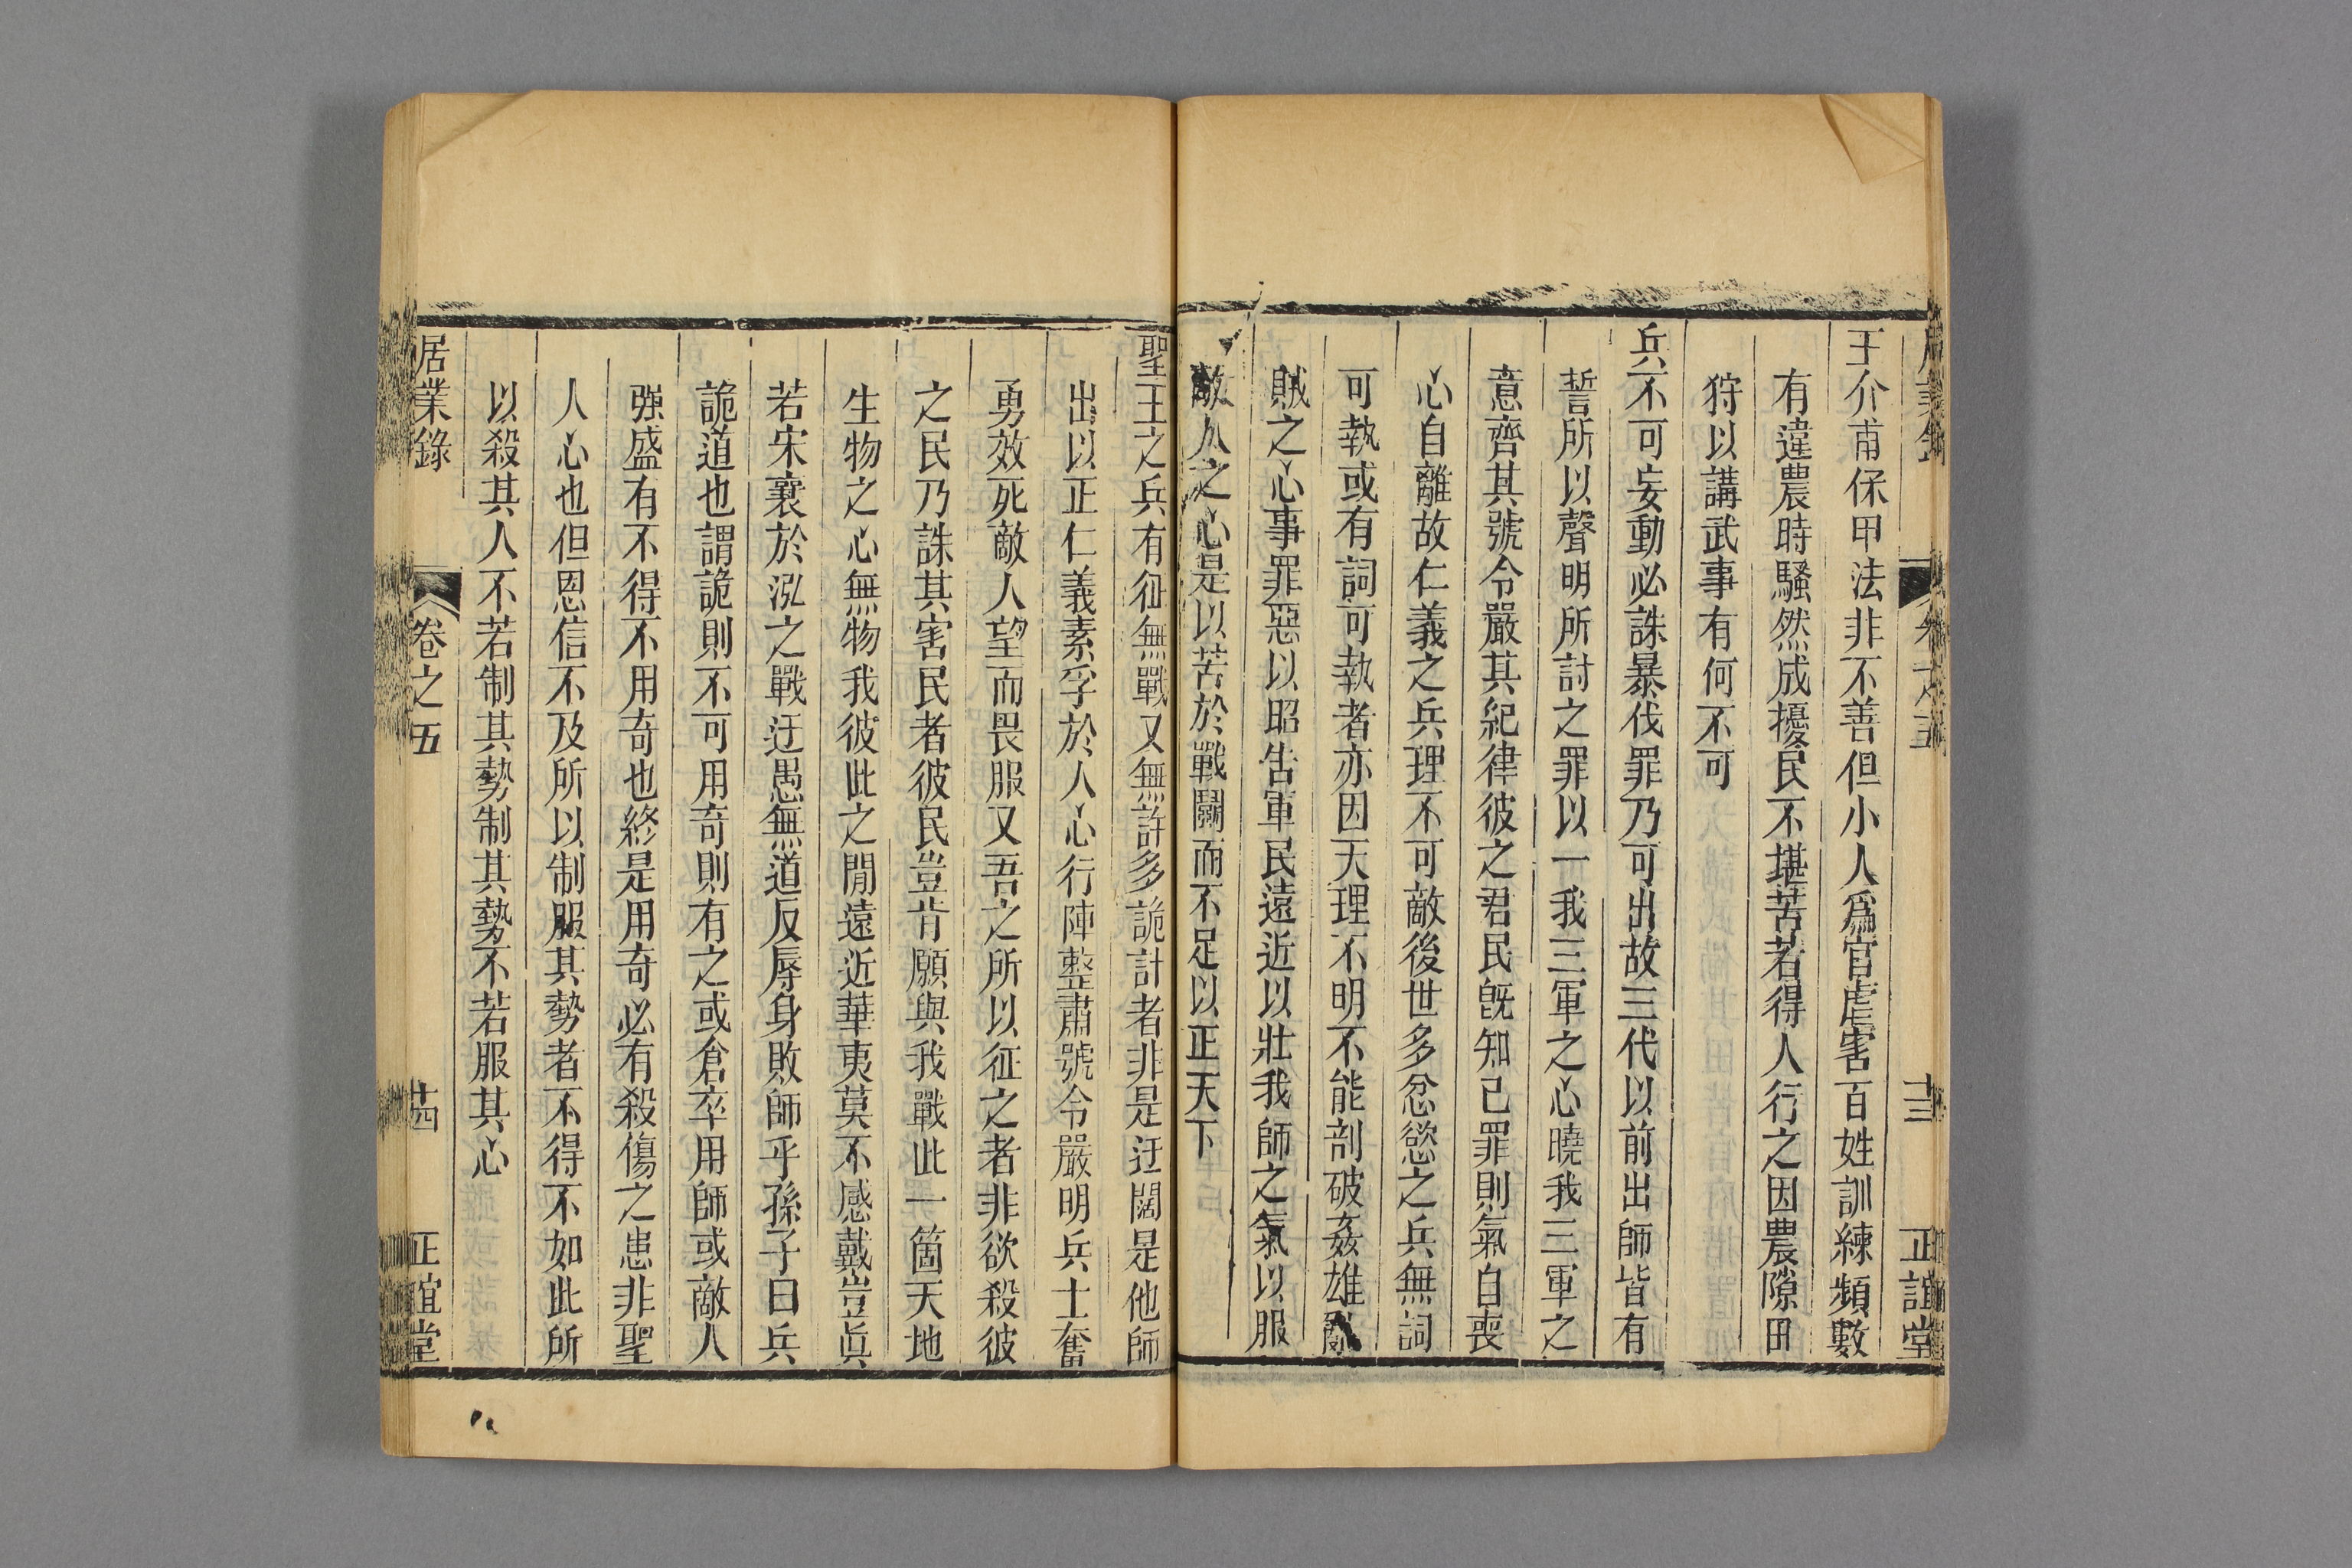 王介甫保甲法非不善但小人爲官虐害百姓訓練頻數
有違農時騷然成擾民不堪苦若得人行之因農隙田
狩以講武事有何不可
兵不可妄動必誅暴伐罪乃可出故三代以前出師皆有
誓所以聲明所討之罪以一我三軍之心曉我三軍之
意齊其號令嚴其紀律彼之君民旣知己罪則氣自喪
心自離故仁義之兵理不可敵後世多忿慾之兵無詞
可執或有詞可執者亦因天理不明不能剖破姦雄亂
賊之心事罪惡以昭告軍民遠近以壯我師之氣以服
敵人之心是以苦於戰鬭而不足以正天下
聖王之兵有征無戰又無許多詭計者非是迂闊是他師
出以正仁義素孚於人心行陣整肅號令嚴明兵士奮
勇效死敵人望而畏服又吾之所以征之者非欲殺彼
之民乃誅其害民者彼民豈肯願與我戰此一箇天地
生物之心無物我彼此之閒遠近華夷莫不感戴豈眞
若宋襄於泓之戰迂愚無道反辱身敗師乎孫子曰兵
詭道也謂詭則不可用奇則有之或倉卒用師或敵人
强盛有不得不用奇也終是用奇必有殺傷之患非聖
人心也但恩信不及所以制服其勢者不得不如此所
以殺其人不若制其勢制其勢不若服其心
居業錄 卷之五 十四 正誼堂